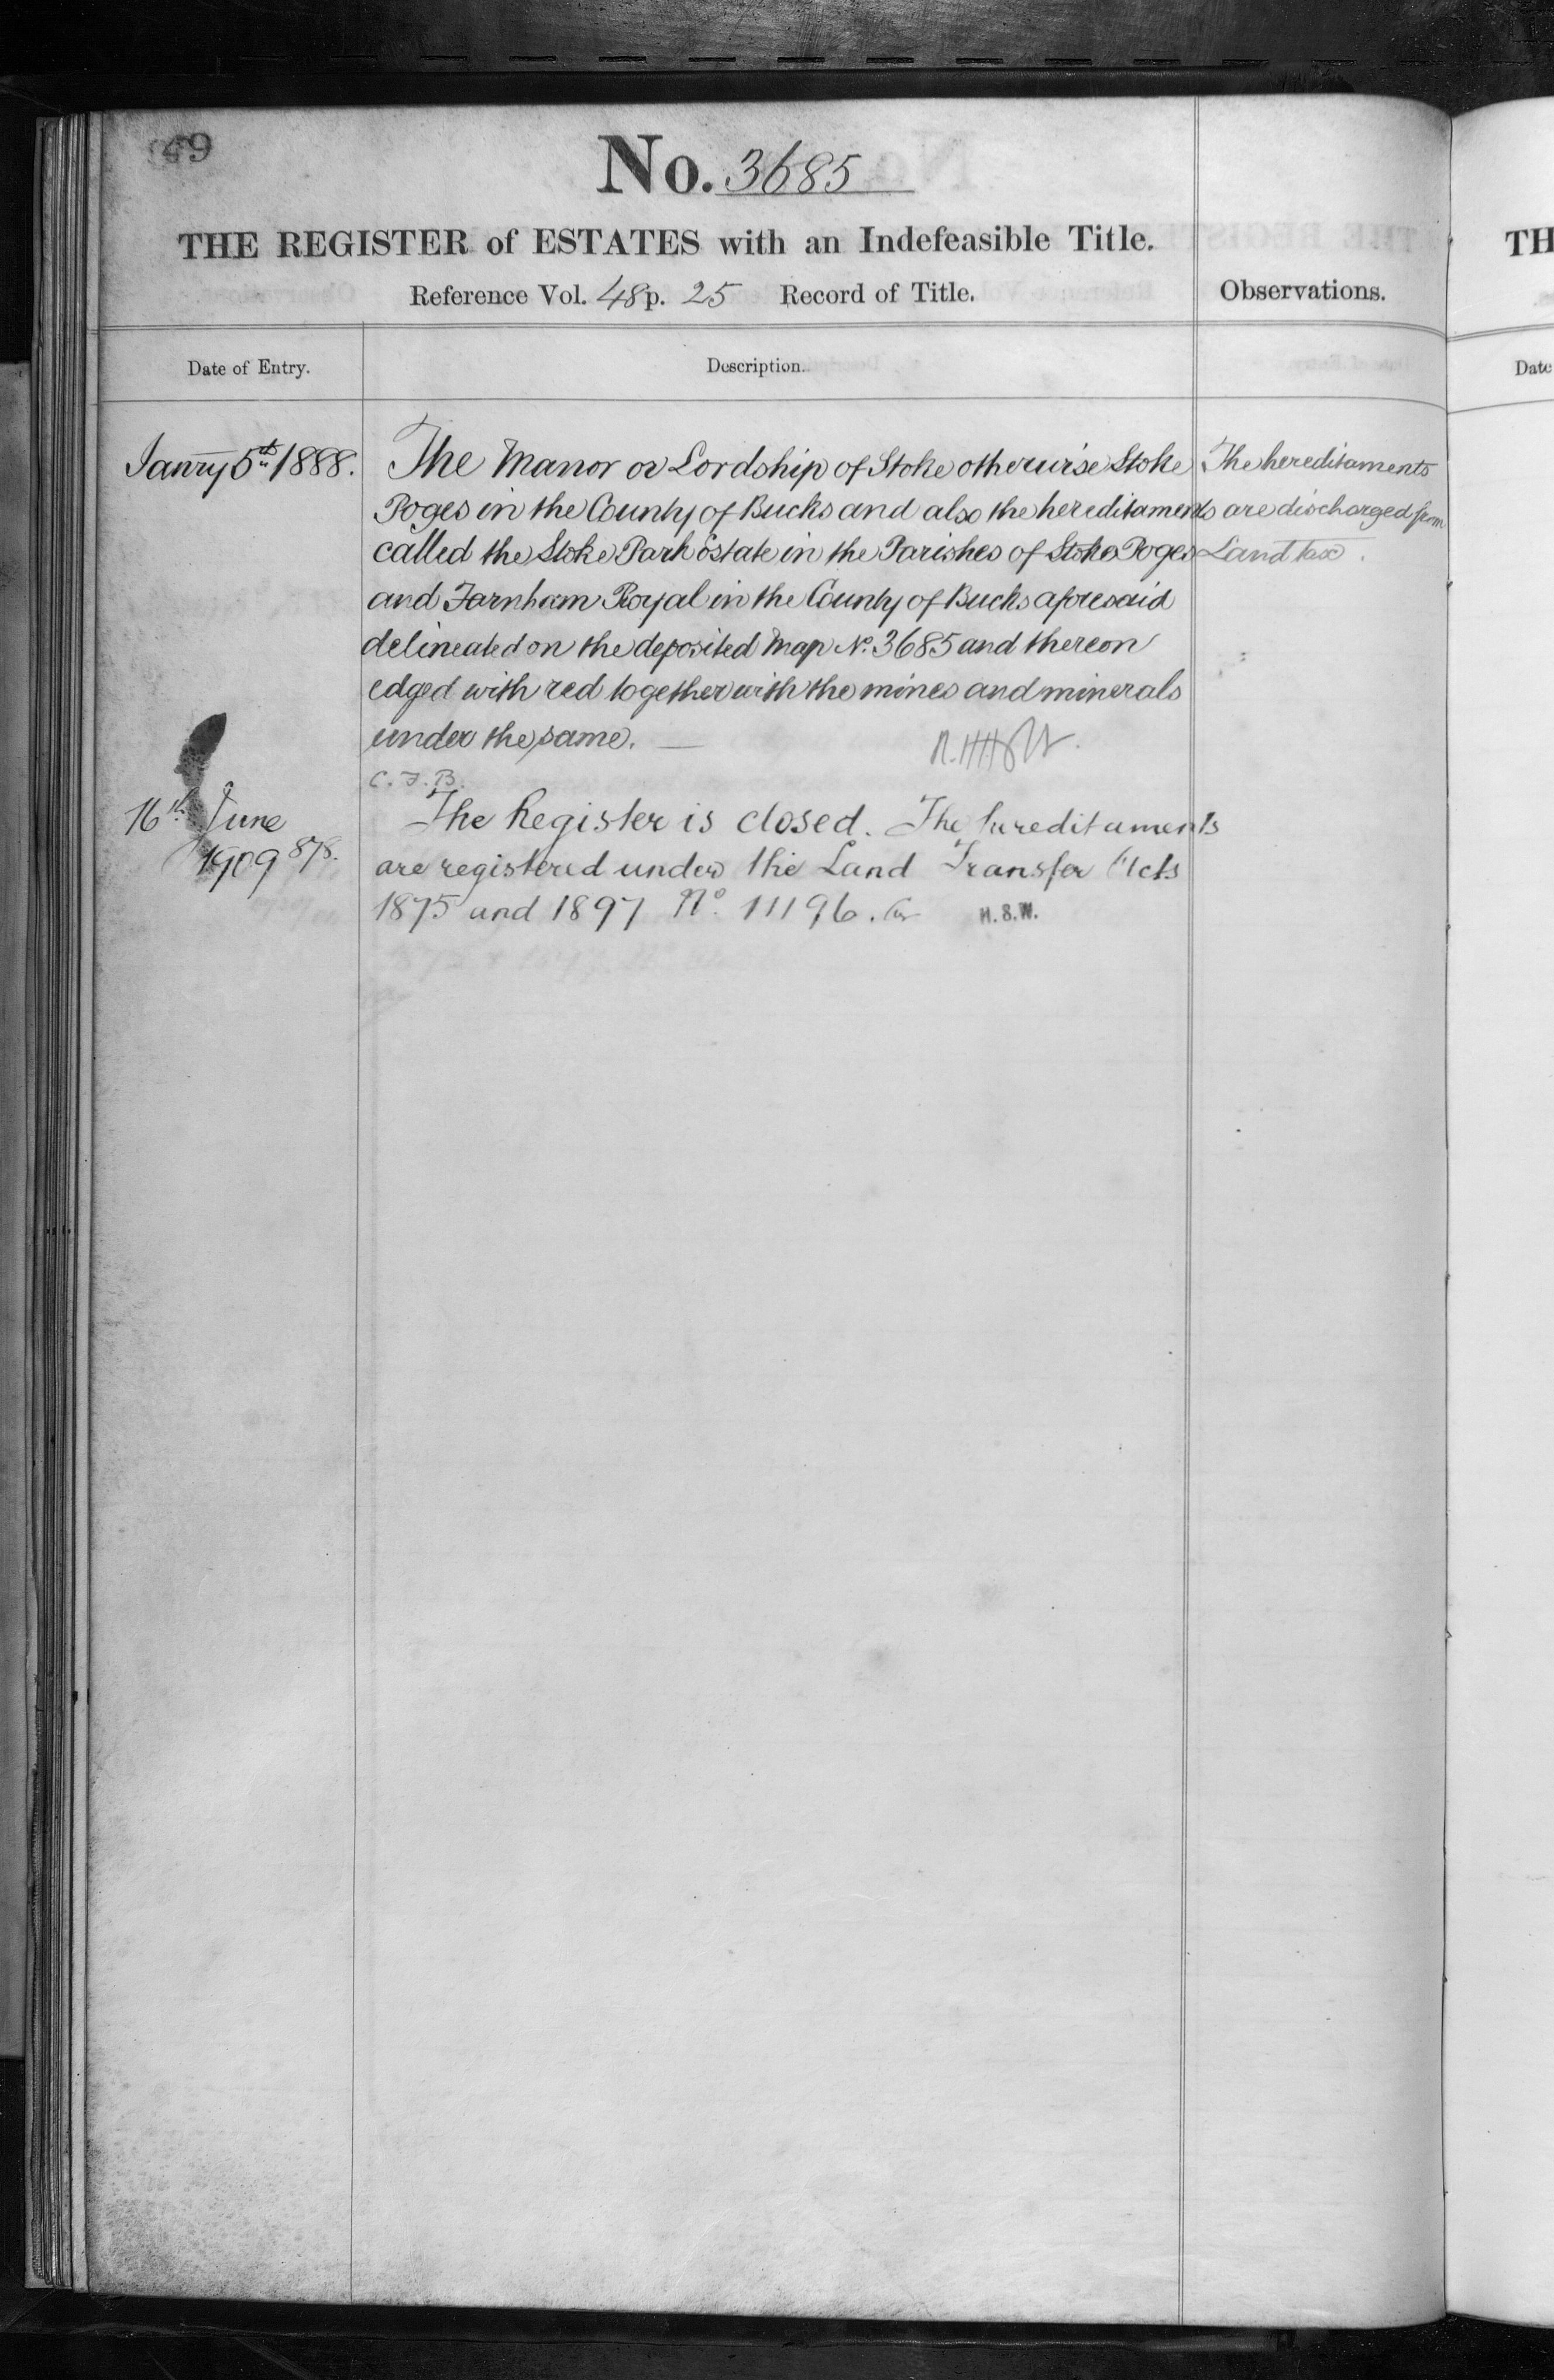 No. 3685
THE REGISTER of ESTATES with an Indefeasible Title.
Reference Vol. 48 p. 25 Record of Title.
Observations.
Date of Entry.
Description.
Janry 5th 1888.
The Manor or Lordship of Stoke otherwise Stoke
Poges in the County of Bucks and also the hereditaments
called the Stoke Park Estate in the Parishes of Stoke Poges
and Farnham Royal in the County of Bucks aforesaid
delineated on the deposited Map No. 3685 and thereon
edged with red together with the mines and minerals
under the same.
C. F. B.
The hereditaments
are discharged from
Land tax.
16th June
1909 878.
The Register is closed. The hereditaments
are registered under the Land Transfer Acts
1875 and 1897 No. 11196.
H.S.W.
TH
Date